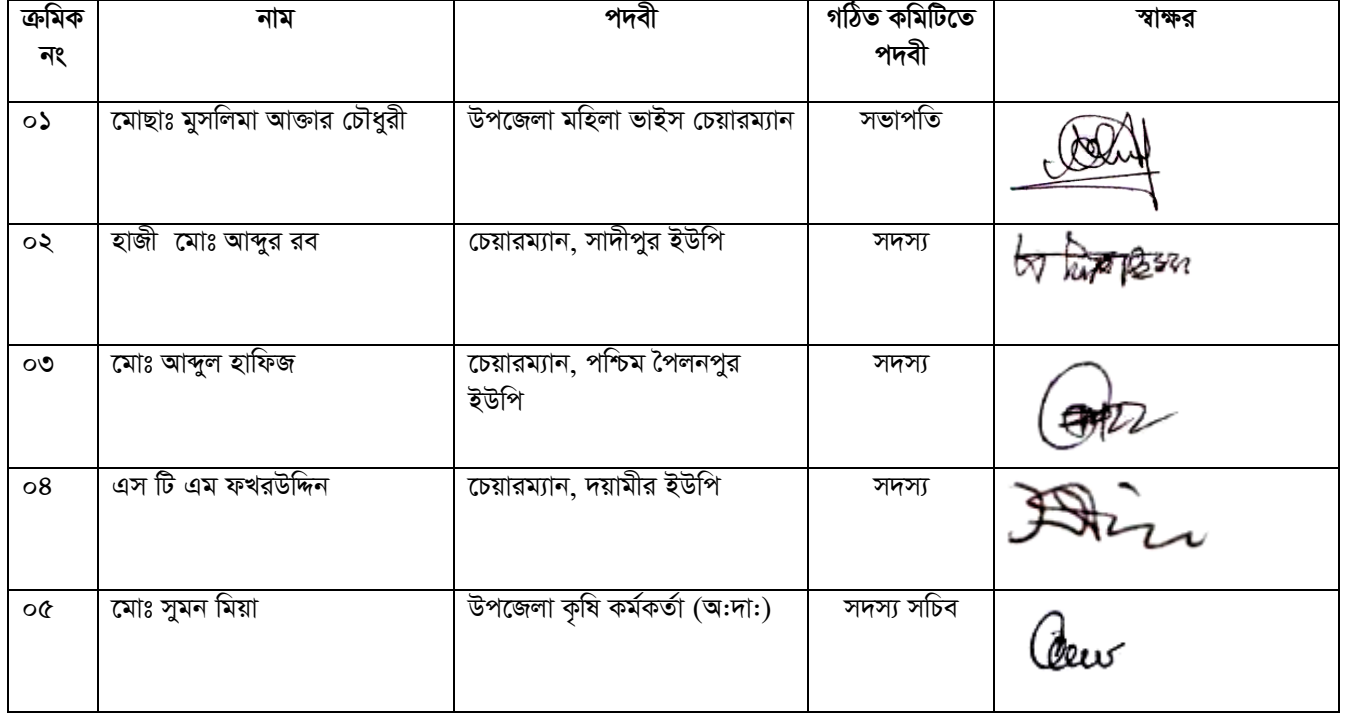 ক্রমিক নং নাম পদবী গঠিত কমিটিতে পদবী স্বাক্ষর
০১ মোছাঃ মুসলিমা আক্তার চৌধুরী উপজেলা মহিলা ভাইস চেয়ারম্যান সভাপতি
০২ হাজী মোঃ আব্দুর রব চেয়ারম্যান, সাদীপুর ইউপি সদস্য
০৩ মোঃ আব্দুল হাফিজ চেয়ারম্যান, পশ্চিম পৈলনপুর ইউপি সদস্য
০৪ এস টি এম ফখরউদ্দিন চেয়ারম্যান, দয়ামীর ইউপি সদস্য
০৫ মোঃ সুমন মিয়া উপজেলা কৃষি কর্মকর্তা (অ:দা:) সদস্য সচিব